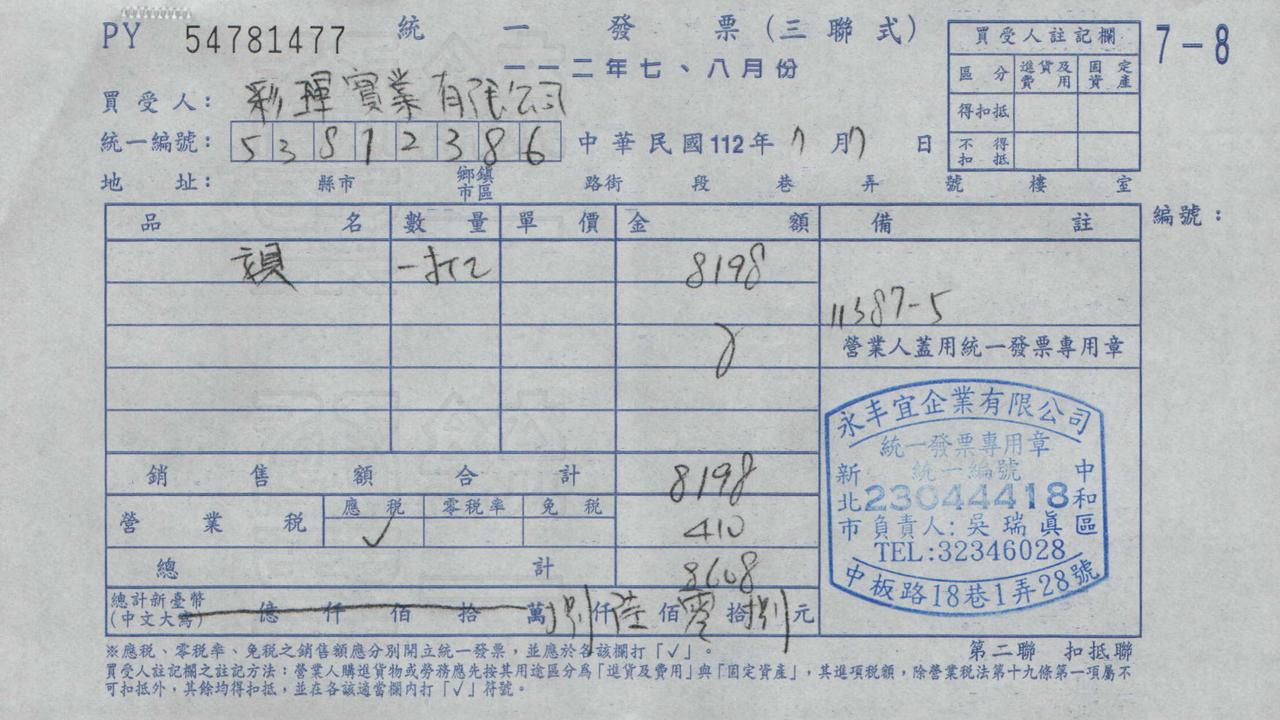 PY 54781477 統一發票(三聯式)
7-8
一一二年七、八月份
買受人註記欄
區分 進貨及費用 固定資產
得扣抵
不得扣抵
買受人: 彩琿實業有限公司
統一編號: 53812386 中華民國112年7月7日
地址: 縣市 鄉鎮市區 路街 段 巷 弄 號 樓 室
編號:
品名 數量 單價 金額 備註
一打 8198
11387-5
營業人蓋用統一發票專用章
銷售額合計 8198
營業稅 應稅 ✓ 零稅率 免稅 410
總計 8608
總計新臺幣(中文大寫) 億仟佰拾萬捌仟陸佰零拾捌元
永丰宜企業有限公司
統一發票專用章
統一編號
23044418
新北市 中和區
負責人:吳瑞眞
TEL:32346028
中板路18巷1弄28號
※應稅、零稅率、免稅之銷售額應分別開立統一發票,並應於各該欄打「✓」。
第二聯 扣抵聯
買受人註記欄之註記方法:營業人購進貨物或勞務應先按其用途區分為「進貨及費用」與「固定資產」,其進項稅額,除營業稅法第十九條第一項屬不
可扣抵外,其餘均得扣抵,並在各該適當欄內打「✓」符號。